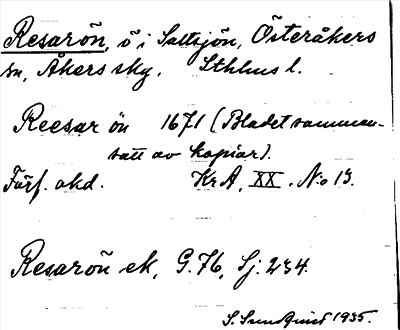 Resarön, ö i Saltsjön, Österåkers
sn, Åkers skg, Sthlms l.
Reesar ön 1671 (Bladet samman-
satt av kopior).
Förf. okd. KrA, XX. N:o 13.
Resarön ek, G.76, Sj: 234.
S. Sundquist 1935.